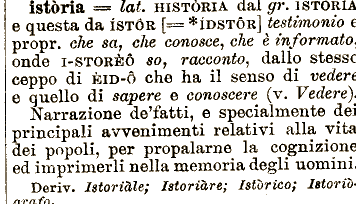 istòria = lat. HISTÒRIA dal gr. ISTORIA
e questa da ÍSTÓR [= *ÍDSTÔR] testimonio e
propr. che sa, che conosce, che è informato,
onde I-STORÈÔ so, racconto, dallo stesso
ceppo di ÈID-Ô che ha il senso di vedere
e quello di sapere e conoscere (v. Vedere).
Narrazione de'fatti, e specialmente dei
principali avvenimenti relativi alla vita
dei popoli, per propalarne la cognizione
ed imprimerli nella memoria degli uomini.
Deriv. Istoriàle; Istoriàre; Istòrico; Istorio-
grafo.